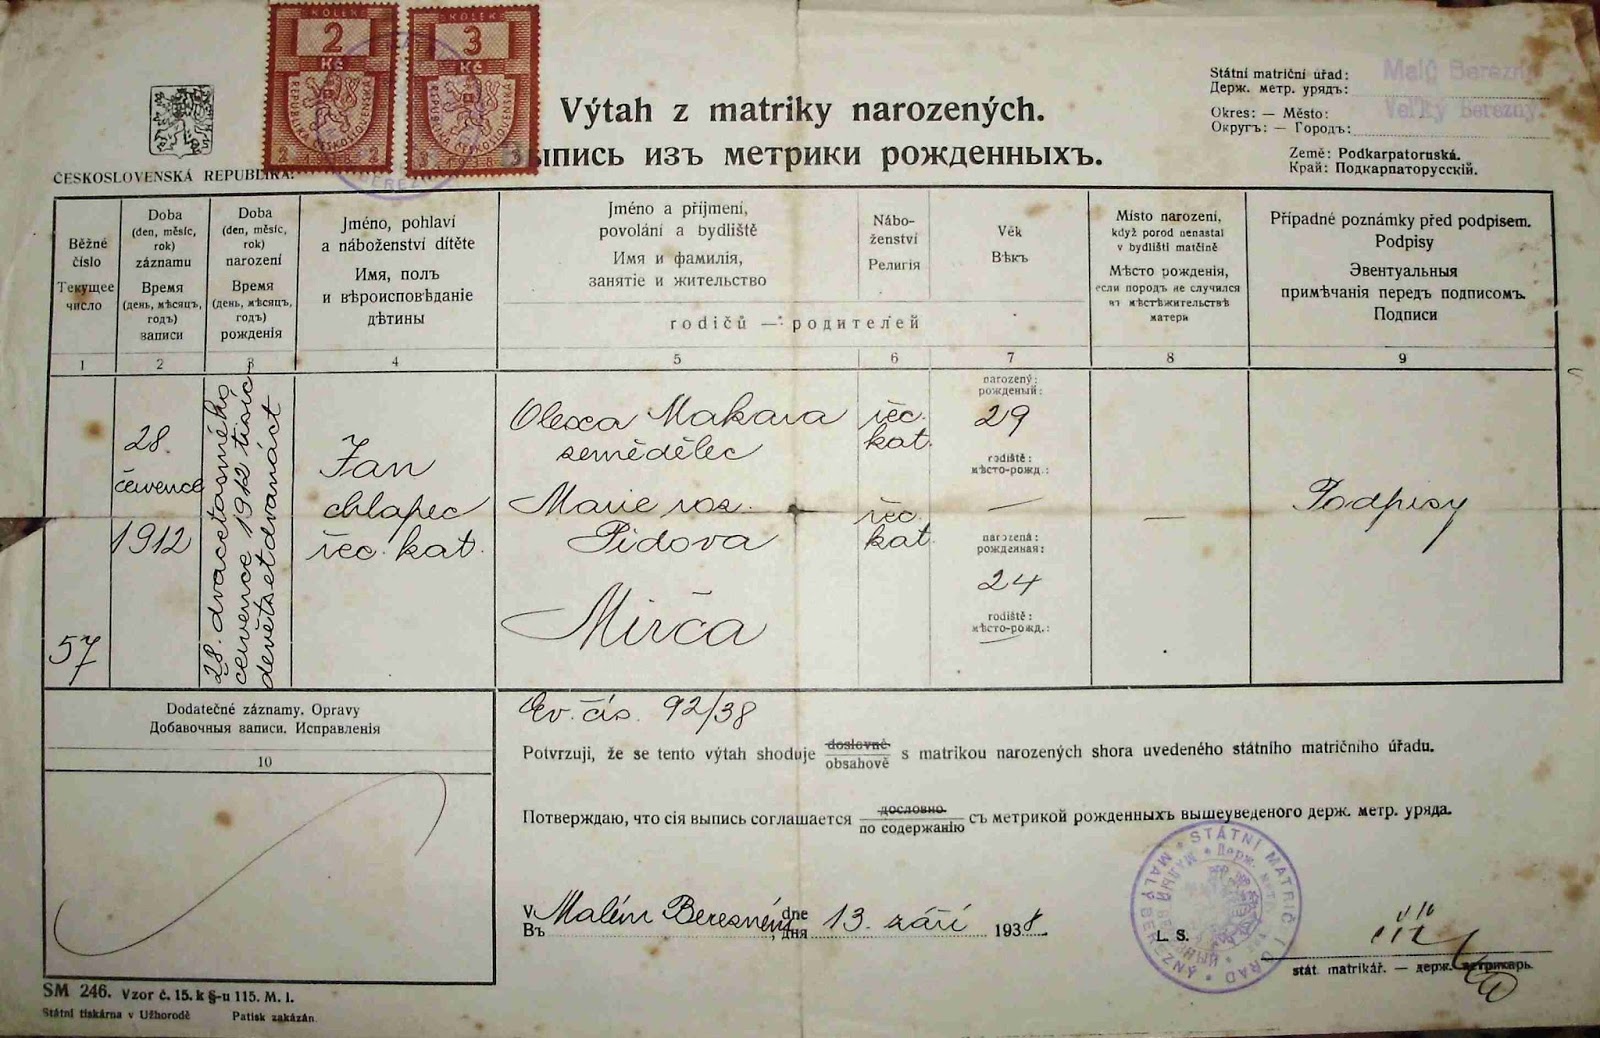 KOLEK KOLEK
2 3
Kč Kč
REPUBLIKA ČESKOSLOVENSKÁ REPUBLIKA ČESKOSLOVENSKÁ
2 1938 2 3 1938 3
ČESKOSLOVENSKÁ REPUBLIKA.
Výtah z matriky narozených.
ыпись изъ метрики рожденныхъ.
Státní matriční úřad: Malý Berezný
Держ. метр. урядъ:
Okres: — Město: Veľký Berezný.
Округъ: — Городъ:
Země: Podkarpatoruská.
Край: Подкарпаторусскій.
Běžné číslo
Текущее число
Doba (den, měsíc, rok) záznamu
Время (день, мѣсяцъ, годъ) записи
Doba (den, měsíc, rok) narození
Время (день, мѣсяцъ, годъ) рожденія
Jméno, pohlaví a náboženství dítěte
Имя, полъ и вѣроисповѣданіе дѣтины
Jméno a příjmení, povolání a bydliště
Имя и фамилія, занятіе и жительство
Nábo-ženství
Религія
Věk
Вѣкъ
rodičů — родителей
Místo narození, když porod nenastal v bydlišti matčině
Мѣсто рожденія, если породъ не случился въ мѣстѣжительствѣ матери
Případné poznámky před podpisem.
Podpisy
Эвентуальныя примѣчанія передъ подписомъ.
Подписи
1 2 3 4 5 6 7 8 9
57
28.
července
1912
28. dvacetosmého
července 1912 tisíc
devětsetdvanáct
Jan
chlapec
řec. kat.
Olexa Makara
zemědělec
Marie roz.
Pidova
Mirča
řec.
kat.
řec.
kat.
narozený:
рожденый:
29
rodiště:
мѣсто-рожд.:
—
narozená:
рожденная:
24
rodiště:
мѣсто-рожд.:
—
—
Podpisy
Dodatečné záznamy. Opravy
Добавочныя записи. Исправленія
10
Ev. čís. 92/38
Potvrzuji, že se tento výtah shoduje doslovně obsahově s matrikou narozených shora uvedeného státního matričního úřadu.
Потверждаю, что сія выпись соглашается дословно. по содержанію съ метрикой рожденныхъ вышеуведеного держ. метр. уряда.
V Malém Berezném dne 13. září 1938.
Въ , дня
STÁTNÍ MATRIČNÍ ÚŘAD
MALÝ BEREZNÝ
L. S.
stát. matrikář. — держ. метрикарь.
SM 246. Vzor č. 15. k §-u 115. M. I.
Státní tiskárna v Užhorodě Patisk zakázán.